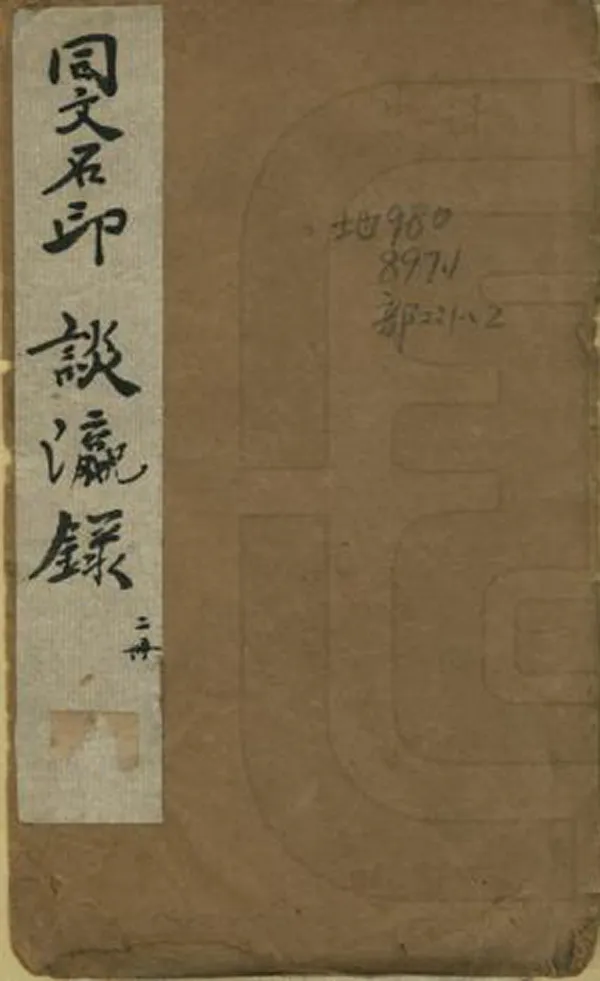 同文石印 談瀛録
二冊
地980
897.1
部221.2